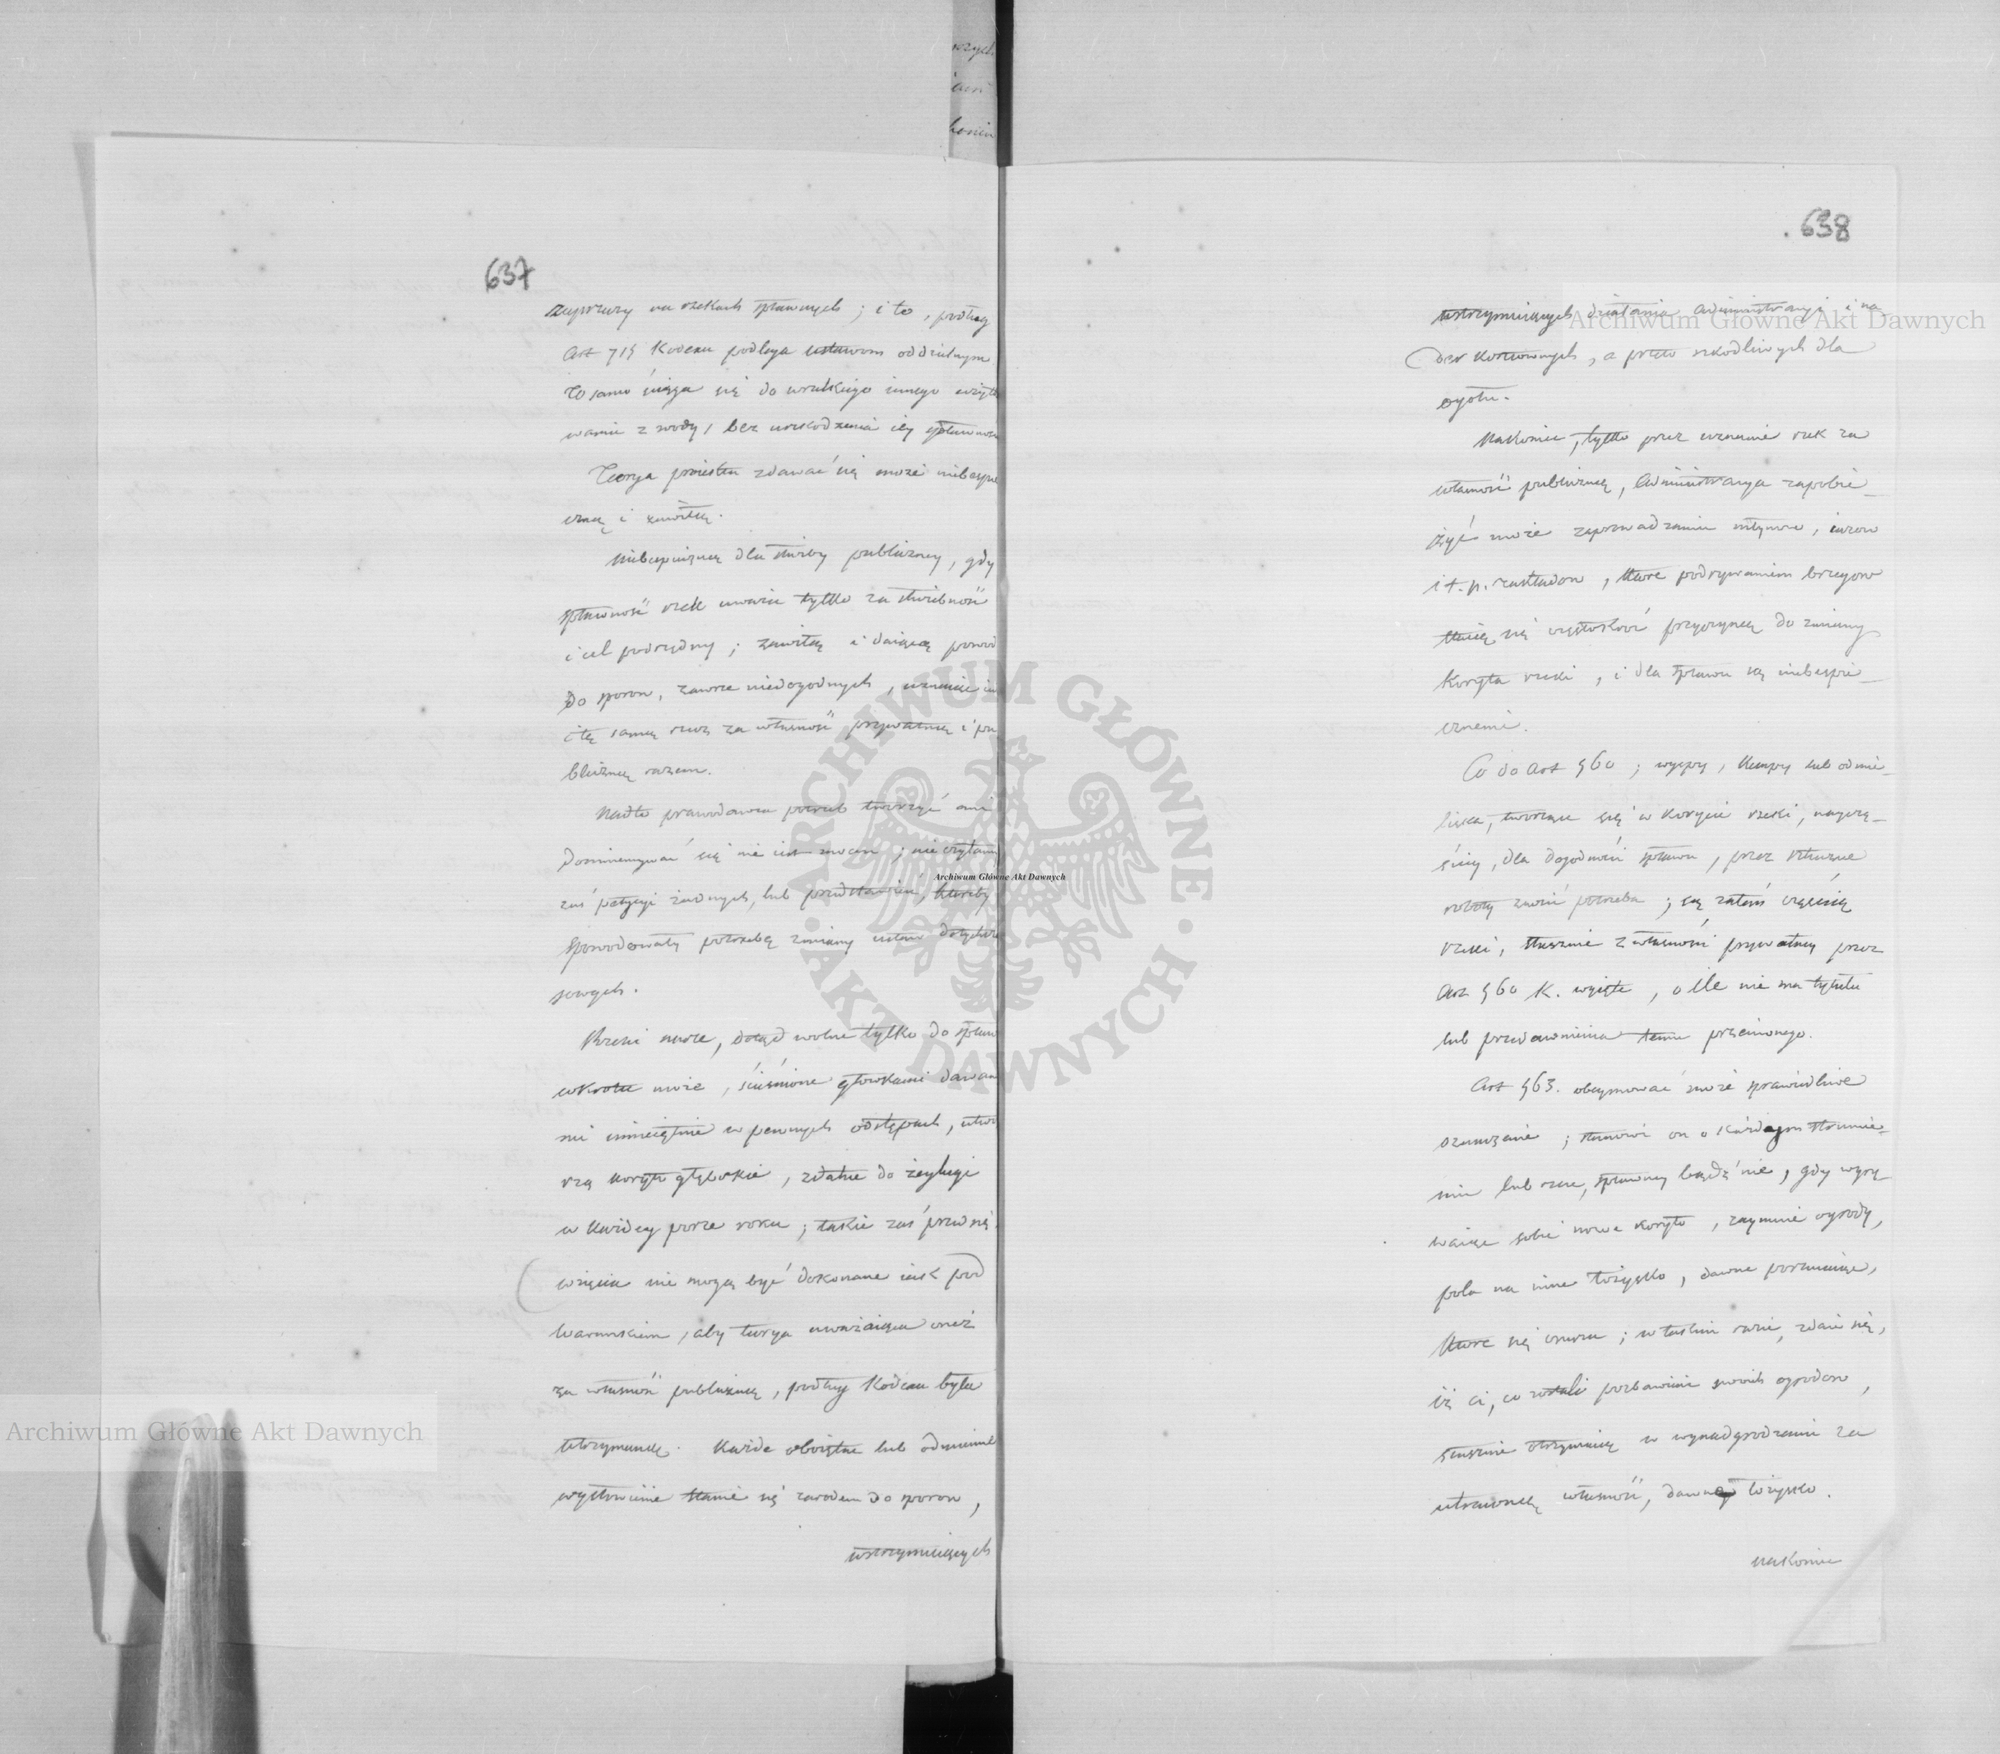 637
na rzekach spławnych; i to, podług
Art 715 Kodexu podlega ustawom oddzielnym
To samo ściąga się do wszelkiego innego użytko
wania z wody, bez uszkodzenia iey spławności
Teorya proiektu zdawać się może niebezpie
czną i zawiłą.
Niebezpieczną dla służby publiczney, gdy
spławność rzek uważa tylko za służebność
i cel podrzędny; zawiłą i daiącą powód
do sporow, zawsze niedogodnych, uznaiąc iedną
i tę samą rzecz za własność prywatną i pu
bliczną razem.
Nadto prawodawca potrzeb tworzyć ani
domniemywać się nie iest mocen; nie czytamy
zaś petycyi żadnych, lub przedstawień, ktoreby
spowodowały potrzebę zmiany ustaw dotychcza
sowych.
Rzeki nasze, dotąd wolne tylko do spławu
wkrotce może, ścieśnione głowkami dawane
mi umieiętnie w pewnych odstępach, utwo
rzą koryta głębokie, zdatne do żeglugi
w każdey porze roku; takie zaś przedsię
wzięcia nie mogą być dokonane iak pod
warunkiem, aby teorya uważaiąca onéż
za własność publiczną, podług Kodexu była
utrzymaną. Każde oboiętne lub odmienne
wysłowienie stanie się zarodem do sporow,
wstrzymuiących
638
wstrzymuiących działania administracyi i na
der kosztownych, a przeto szkodliwych dla
ogołu.
Nakoniec, tylko przez uznanie rzek za
własność publiczną, Administracya zapobie_
żyć może zaprowadzaniu młynow, iazow
i t. p. zakładow, ktore podrywaniem brzegow
staią się częstokroć przyczyną do zmiany
koryta rzeki, i dla spławu są niebezpie_
cznemi.
Co do Art 560; wyspy, kempy lub odmie_
liska, tworzące się w korycie rzeki, naycze_
ściey, dla dogodności spławu, przez sztuczne
roboty znosić potrzeba; są zatém częścią
rzeki, słusznie z własności prywatney przez
Art 560 K. wyięte, o ile nie ma tytułu
lub przedawnienia temu przeciwnego.
Art 563. otrzymować może sprawiedliwe
oznaczenie; stanowi on o każdym strumie_
niu lub rzece, spławney bądź nie, gdy wyry
waiąc sobie nowe koryto, zaymuie ogrody,
pola na inne łożysko, dawne porzucaiąc,
ktore się osusza; w takim razie, zdaie się,
iż ci, co zostali pozbawieni swoich ogrodow,
słusznie otrzymaią w wynadgrodzeniu za
utraconą własność, dawne łożysko.
nakoniec
Archiwum Główne Akt Dawnych
Archiwum Główne Akt Dawnych
Archiwum Główne Akt Dawnych
ARCHIWUM GŁÓWNE AKT DAWNYCH